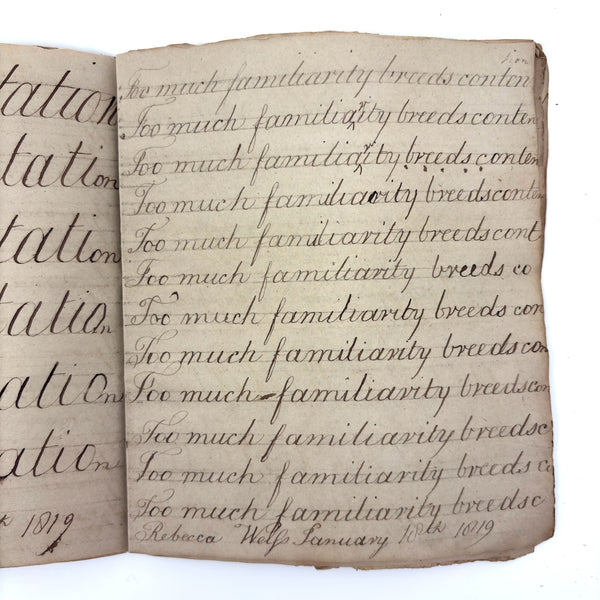 tation
tation
tation
tation
tation
ation
ation
th 1819
Too much familiarity breeds conten
Too much familiarity breeds conten
Too much familiarity breeds conten
Too much familiarity breeds conten
Too much familiarity breeds cont
Too much familiarity breeds co
Too much familiarity breeds con
Too much familiarity breeds con
Too much familiarity breeds con
Too much familiarity breeds c
Too much familiarity breeds co
Too much familiarity breeds c
Rebecca Wells January 18th 1819